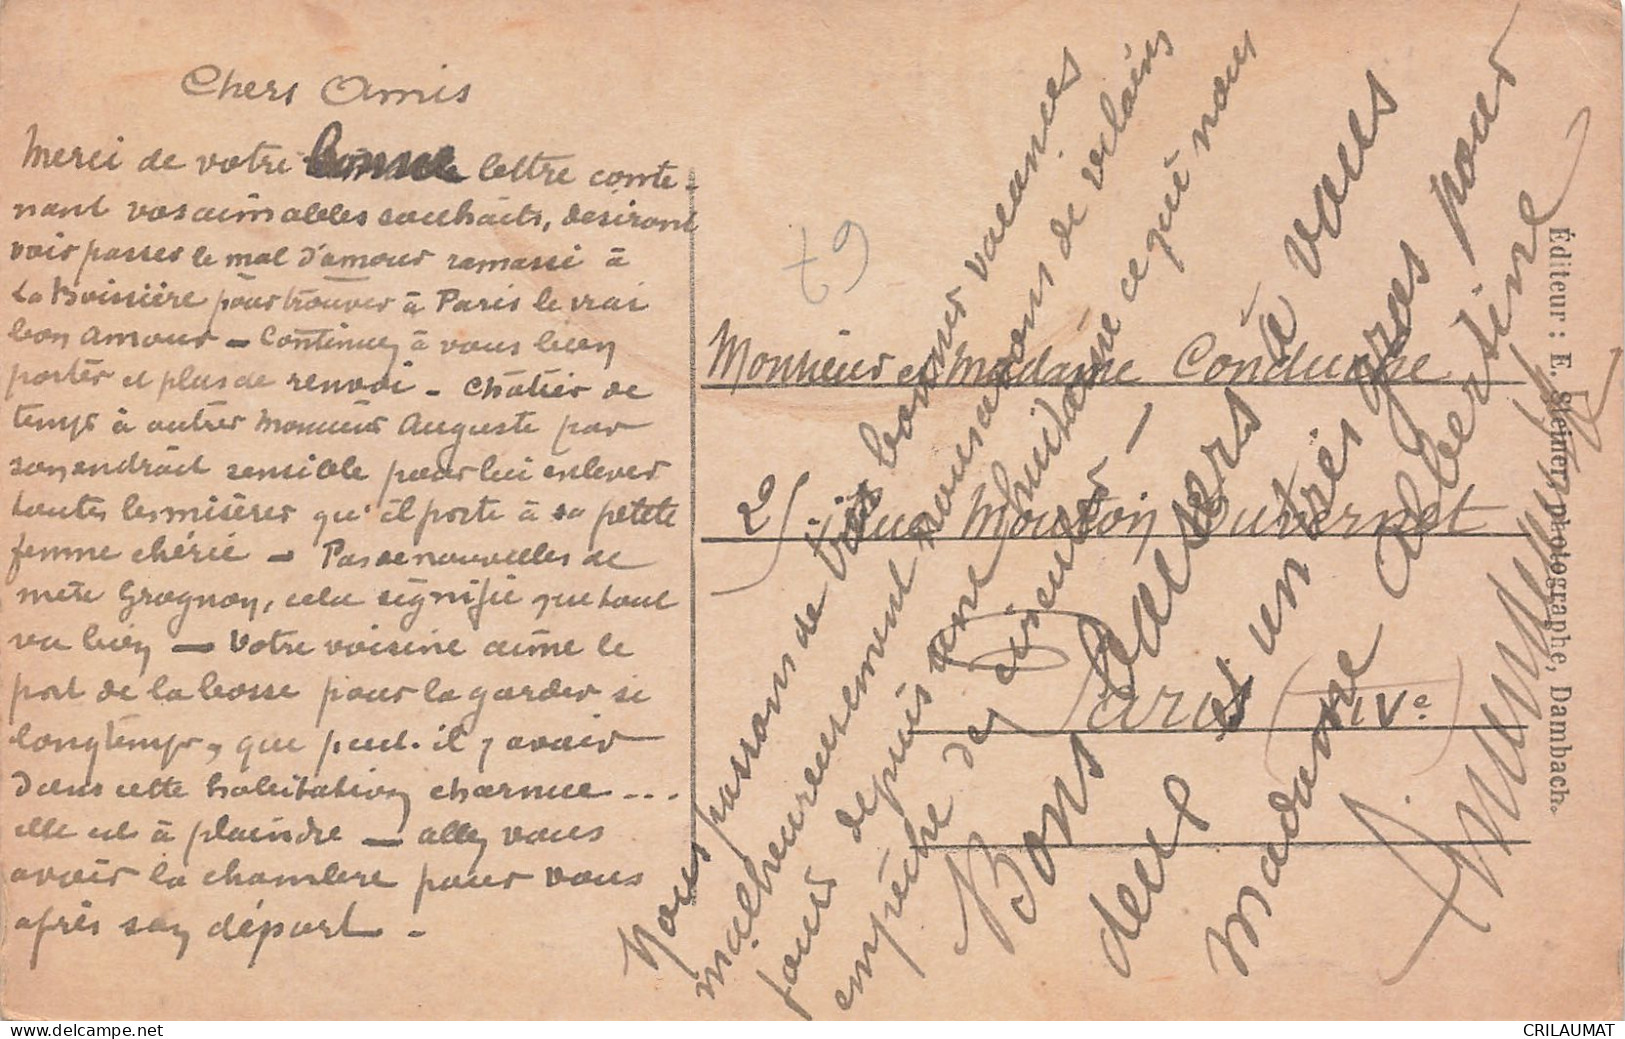 Chers Amis
Merci de votre bonne lettre conte-
nant vos aimables souhaits, desirant
voir passer le mal d'amour ramassé à
La Boissière pour trouver à Paris le vrai
bon amour - Continuez à vous bien
porter et plus de renvoi - Châtier de
temps à autres Monsieur Auguste par
son endroit sensible pour lui enlever
toutes les misères qu'il porte à sa petite
femme chérie - Pas de nouvelles de
mere Grognon, cela signifie que tout
va bien - Votre voisine aime le
port de la bosse pour la garder si
longtemps, que peut-il y avoir
dans cette habitation charnue ...
elle est à plaindre - allez vous
avoir la chambre pour vous
après son départ -
69
Monsieur et Madame
25 rue Mouton Duvernet
Paris (XIVe)
Nous passons de très bonnes vacances
malheureusement nous avons de vilains
jours depuis une huitaine ce qui nous
empêche de
Bons baisers à vous
deux et un très gros pour
Madame Albertine
Éditeur : E. Steiner, photographe, Dambach.
www.delcampe.net
CRILAUMAT